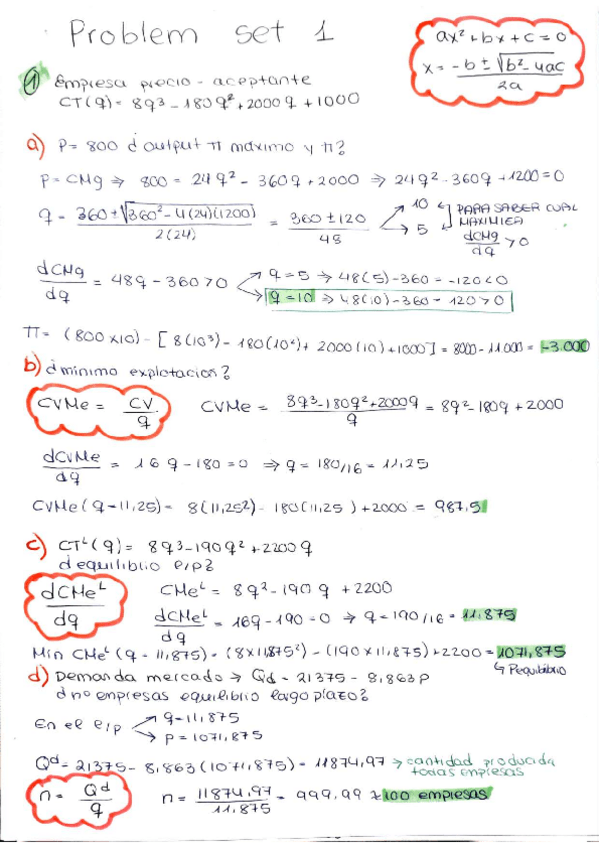 Problem set 1
ax² + bx + c = 0
x = -b ± √b² - 4ac / 2a
① Empresa precio - aceptante
CT(q) = 8q³ - 180q² + 2000q + 1000
a) P = 800 ¿ output π máximo y π?
P = CMg ⇒ 800 = 24q² - 360q + 2000 ⇒ 24q² - 360q + 1200 = 0
q = 360 ± √360² - 4(24)(1200) / 2(24) = 360 ± 120 / 48 → 10 → 5
PARA SABER CUAL MAXIMIZA
dCMg/dq > 0
dCMg/dq = 48q - 360 > 0
q = 5 ⇒ 48(5) - 360 = -120 < 0
q = 10 ⇒ 48(10) - 360 = 120 > 0
π = (800 x 10) - [8(10³) - 180(10²) + 2000(10) + 1000] = 8000 - 11.000 = -3.000
b) ¿mínimo explotación?
CVMe = CV/q
CVMe = 8q³ - 180q² + 2000q / q = 8q² - 180q + 2000
dCVMe/dq = 16q - 180 = 0 ⇒ q = 180/16 = 11,25
CVMe (q = 11,25) = 8(11,25²) - 180(11,25) + 2000 = 987,5
c) CTᴸ(q) = 8q³ - 190q² + 2200q
¿equilibrio e/p?
dCMeᴸ/dq
CMeᴸ = 8q² - 190q + 2200
dCMeᴸ/dq = 16q - 190 = 0 ⇒ q = 190/16 = 11,875
Min CMeᴸ (q = 11,875) = (8x11,875²) - (190 x 11,875) + 2200 = 1071,875
↳ Pequilibrio
d) Demanda mercado → Qd = 21375 - 8,863p
¿nº empresas equilibrio largo plazo?
En el e/p → q = 11,875
→ p = 1071,875
Qᵈ = 21375 - 8,863(1071,875) = 11874,97 → cantidad producida todas empresas
n = Qᵈ/q
n = 11874,97 / 11,875 = 999,99 ≈ 100 empresas